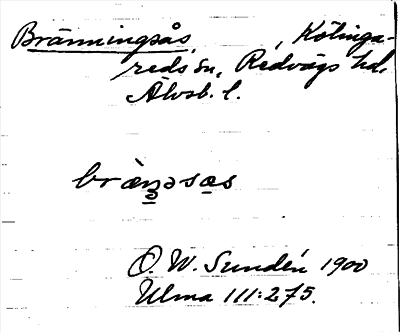 Bränningsås, Kölinga-
reds sn, Redvägs hd.
Älvsb. l.
brän̥əsas
O. W. Sundén 1900
Ulma 111:275.